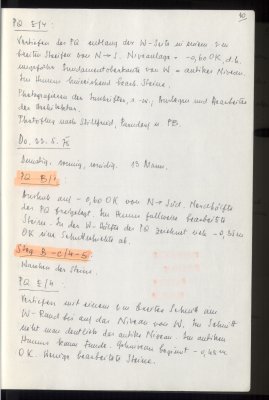 40
PQ E/4:
Vertiefen des PQ entlang der W-Seite in einem 2 m
breiten Streifen von N → S. Niveaulage = -0,60 OK d.h.
ungefähr Fundamentoberkante von W = antikes Niveau.
Im Humus hinreichend bearb. Steine.
Photografieren der
der Architektur.
Photoflug nach Stillfried, und PB.
Do, 22.5.75
Dunstig, sonnig, windig. 13 Mann.
PQ B/1:
Aushub auf -0,60 OK von N → Süd. Nordhälfte
des PQ freigelegt. Im Humus fallweise bearbeitete
Steine. In der W-Hälfte des PQ zeichnet sich -0,35 m
OK eine Schutthalde ab.
Steg B-C/4-5
Waschen der Steine.
PQ E/4:
Vertiefen mit einem 2 m breiten Schnitt am
W-Rand bis auf das Niveau von W. Im Schnitt
sieht man deutlich das antike Niveau. Im antiken
Humus kaum Funde. beginnt -0,45 m
OK. Wenige bearbeitete Steine.